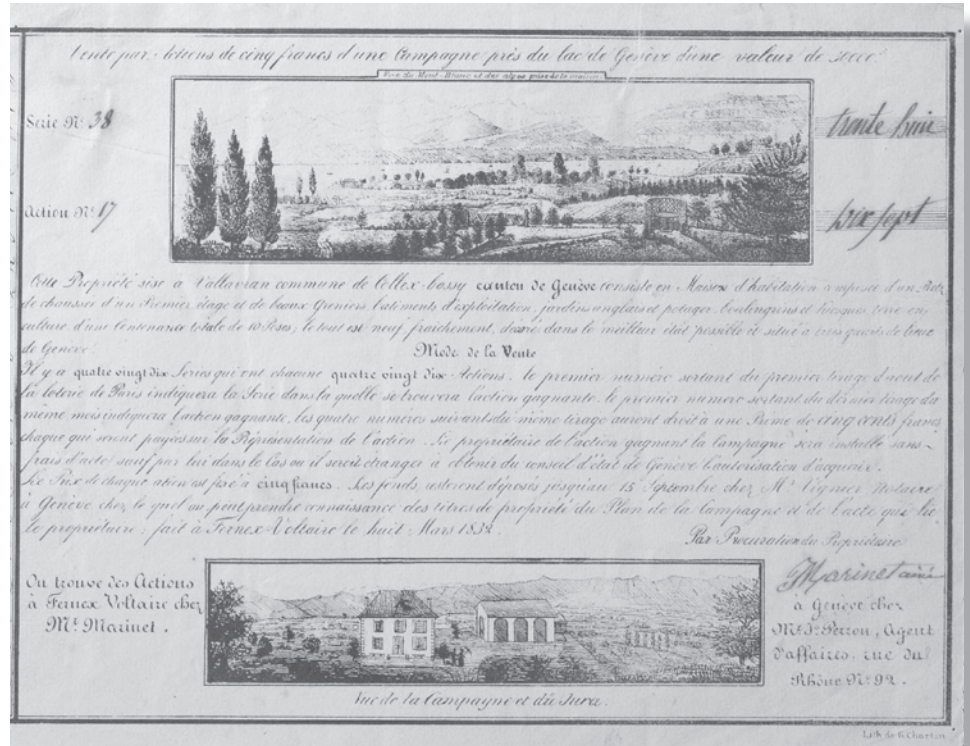 Vente par Actions de cinq francs d'une Campagne près du lac de Genève d'une valeur de
Vue du Mont-Blanc et des alpes prise de la maison
Serie Nº 38
trente huit
Action Nº 17
dix sept
Cette Propriété sise à Vallavran commune de Collex-bossy canton de Genève consiste en Maison d'habitation composée d'un Retz
de chaussée d'un Premier étage et de beaux Greniers, batiments d'exploitation, jardins anglais et potager, boulingrins et kiosques, terre en
culture d'une Contenance totale de 10 Poses, le tout est neuf fraichement, dessiné, dans le meilleur état possible et situé à trois quarts de lieue
de Genève
Mode de la Vente
Il y a quatre vingt dix Series qui ont chacune quatre vingt dix Actions. le premier numéro sortant du premier tirage d'aout de
la loterie de Paris indiquera la Serie dans la quelle se trouvera l'action gagnante, le premier numero sortant du dernier tirage du
même mois indiquera l'action gagnante, les quatre numéros suivants du même tirage auront droit à une Prime de cinq cents francs
chaque qui seront payées sur la Réprésentation de l'action. Le propriétaire de l'action gagnant la Campagne sera installé sans
frais d'acte, sauf par lui dans le Cas ou il seroit étranger à obtenir du conseil d'état de Genève l'autorisation d'acquerir.
Le Prix de chaque ation est fixé à cinq francs. Les fonds, resteront déposés jusqu'au 15 Septembre chez Mr. Vignier Notaire
à Genève chez le quel on peut prendre connaissance des titres de propriété du Plan de la Campagne et de l'acte qui lie
le propriétaire, fait à Fernex-Voltaire le huit Mars
Par Procuration du Propriétaire
Marinet ainé
On trouve des Actions
à Fernex Voltaire chez
Mr. Marinet.
à Genève chez
Mr. Js. Perron, Agent
d'affaires, rue du
Rhône Nº 92.
Vue de la Campagne et du Jura.
Lith. de G. Charton